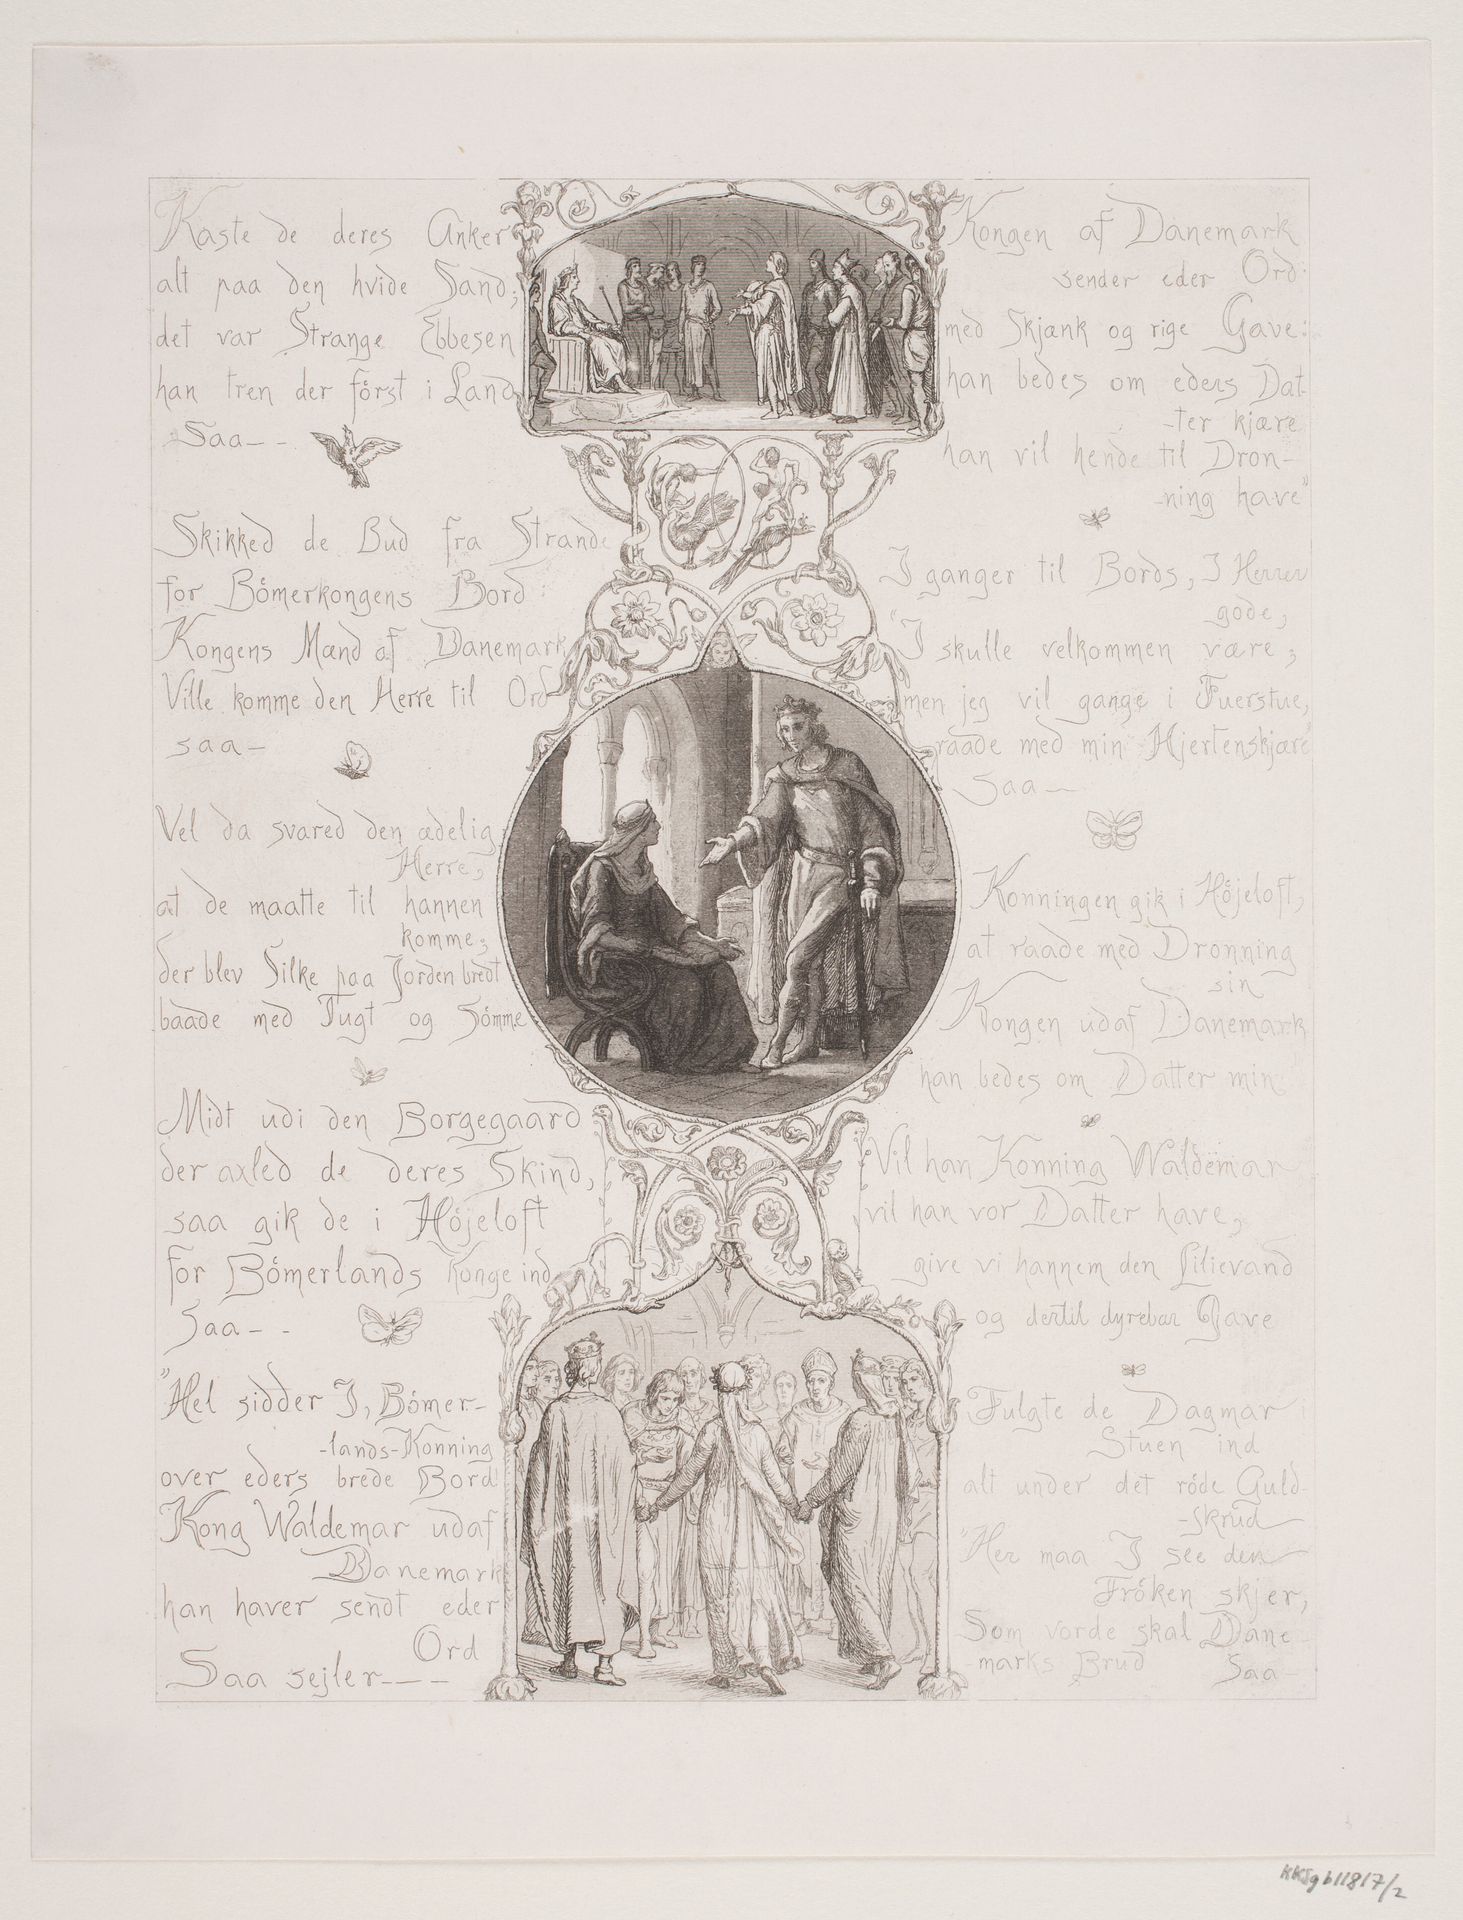 Kaste de deres Anker
alt paa den hvide Sand;
det var Strange Ebbesen
han tren der først i Land
Saa - -
Skikked de Bud fra Strande
for Bömerkongens Bord
Kongens Mænd af Danemark
Ville komme den Herre til Ord
saa -
Vel da svared den ædelig
Herre;
at de maatte til hannem
komme;
der blev Silke paa Jorden bredt
baade med Tugt og Sömme
Midt udi den Borgegaard
der axled de deres Skind,
saa gik de i Höjeloft
for Bömerlands Konge ind
Saa - -
"Hel sidder I, Bömer-
-lands-Konning
over eders brede Bord
Kong Waldemar udaf
Danemark
han haver sendt eder
Ord
Saa sejler - - -
Kongen af Danemark
sender eder Ord:
med Skjænk og rige Gave:
han bedes om eders Dat-
-ter kjære
han vil hende til Dron-
-ning have"
I ganger til Bords, I Herrer
gode,
"I skulle velkommen være;
men jeg vil gange i Fuerstue,
raade med min Hjertenskjære"
Saa -
Konningen gik i Höjeloft,
at raade med Dronning
sin
Kongen udaf Danemark
han bedes om Datter min"
Vil han Konning Waldemar
vil han vor Datter have,
give vi hannem den Lilievand
og dertil dyrebar Gave
Fulgte de Dagmar i
Stuen ind
alt under det röde Guld-
-skrud
"Her maa I see den
Fröken skjer,
Som vorde skal Dane-
-marks Brud
Saa -
KKSgb11817/2